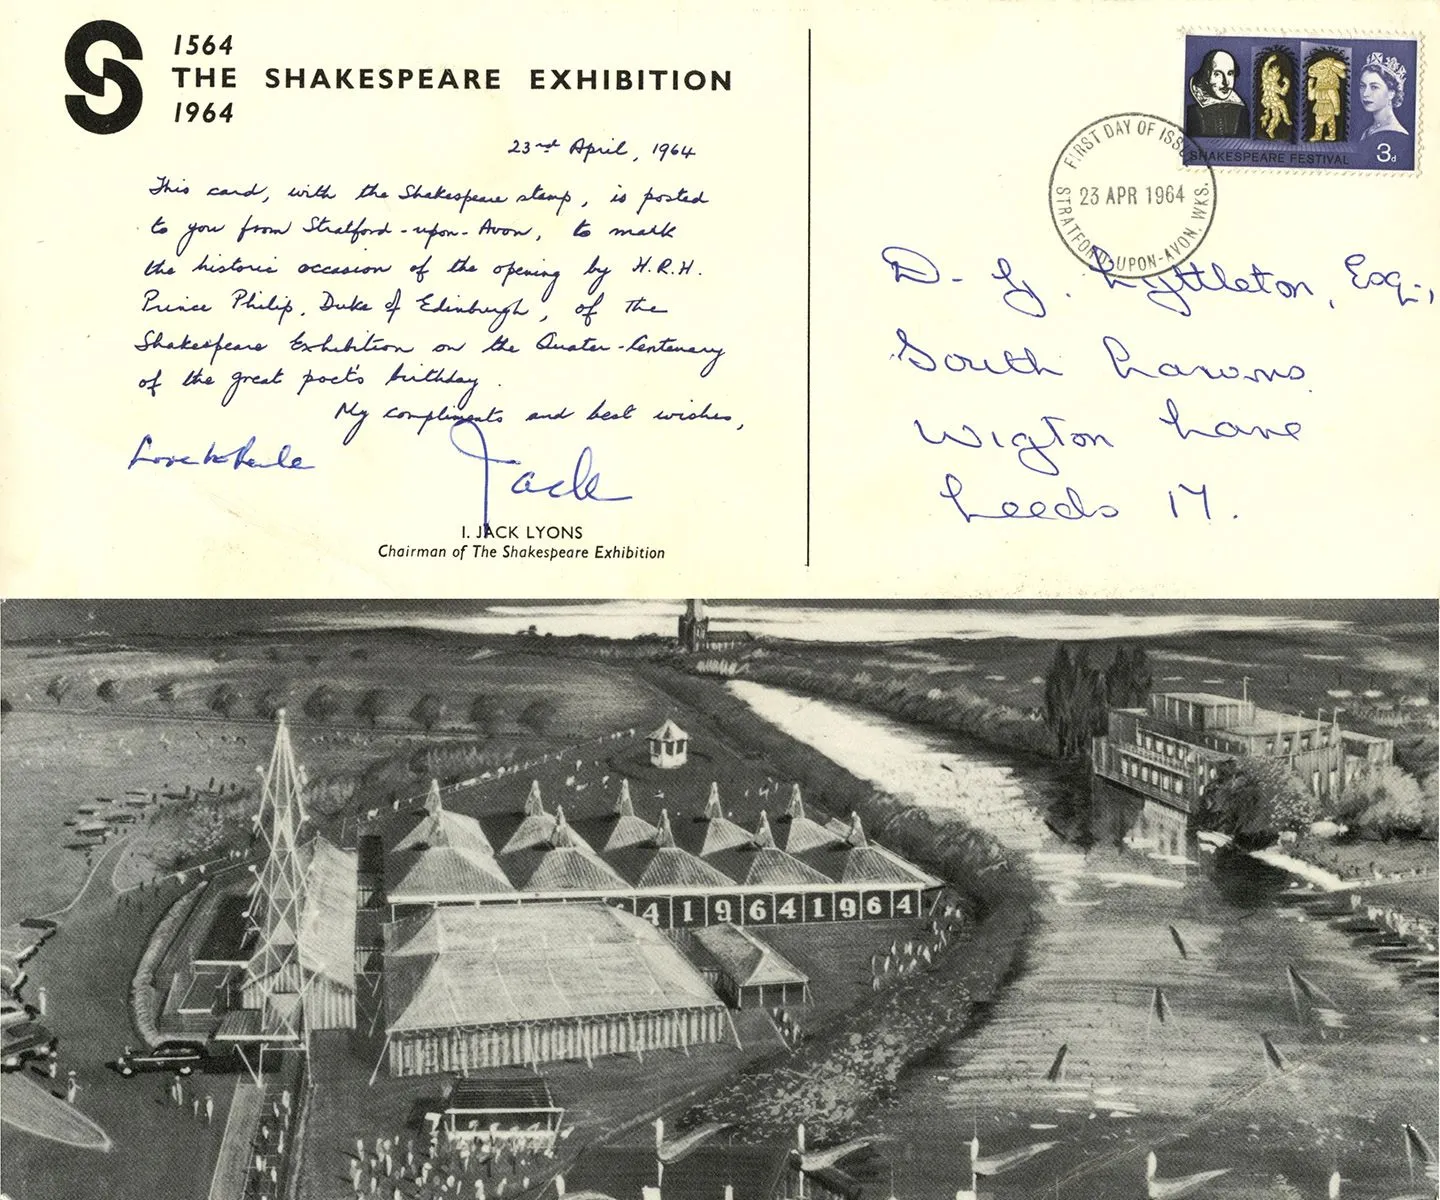 1564
THE SHAKESPEARE EXHIBITION
1964
23rd April, 1964
This card, with the Shakespeare stamp, is posted
to you from Stratford-upon-Avon, to mark
the historic occasion of the opening by H.R.H.
Prince Philip, Duke of Edinburgh, of the
Shakespeare Exhibition on the Quater-Centenary
of the great poet's birthday.
My compliments and best wishes,
Love to
Jack
I. JACK LYONS
Chairman of The Shakespeare Exhibition
SHAKESPEARE FESTIVAL 3d
FIRST DAY OF ISSUE
23 APR 1964
STRATFORD-UPON-AVON, WKS.
D. G. Lyttleton, Esq.,
South Lawns
Wigton Lane
Leeds 17.
4 1964 1964